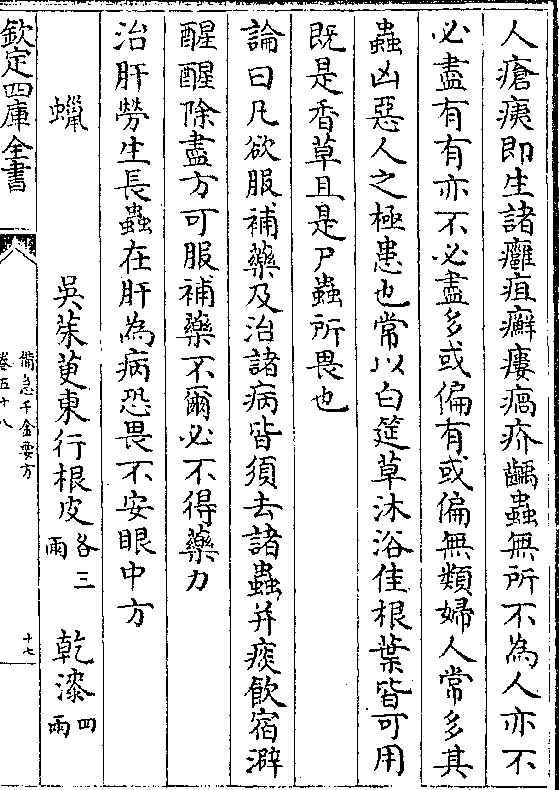 人瘡痍即生諸癰疽癬瘻瘑疥齲蟲無所不為人亦不
必盡有有亦不必盡多或偏有或偏無類婦人常多其
蟲凶惡人之極患也常以白筵草沐浴佳根葉皆可用
既是香草且是尸蟲所畏也
論曰凡欲服補藥及治諸病皆須去諸蟲并痰飲宿澼
醒醒除盡方可服補藥不爾必不得藥力
治肝勞生長蟲在肝為病恐畏不安眼中方
蠟 吳茱萸東行根皮各三兩 乾漆四兩
欽定四庫全書
備急千金要方
卷五十八
十七